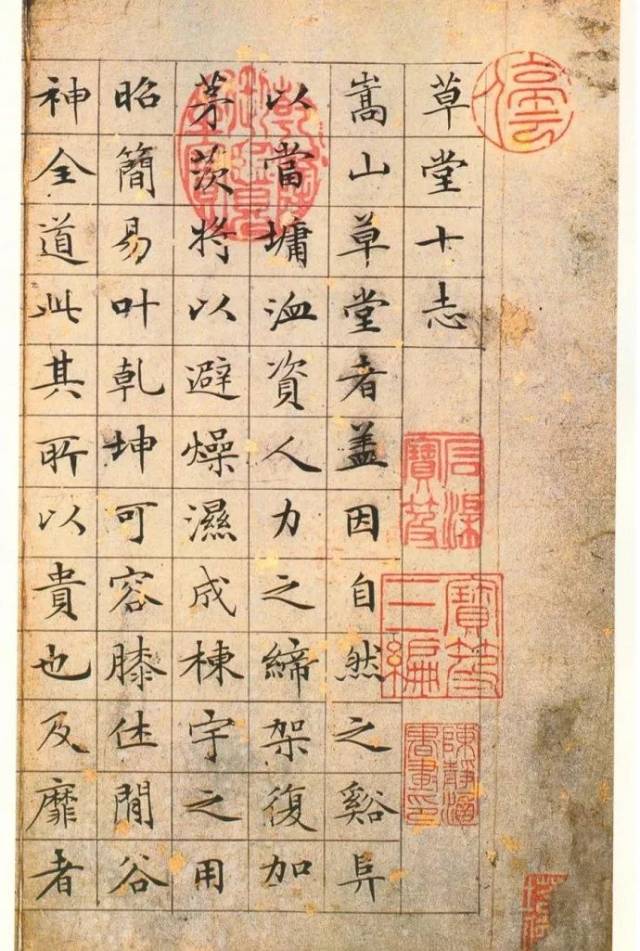 草堂十志
嵩山草堂者盖因自然之谿阜
以當墉洫資人力之締架復加
茅茨将以避燥濕成棟宇之用
昭簡易叶乾坤可容膝休閒谷
神全道此其所以貴也及靡者
石渠寶笈
寶笈三編